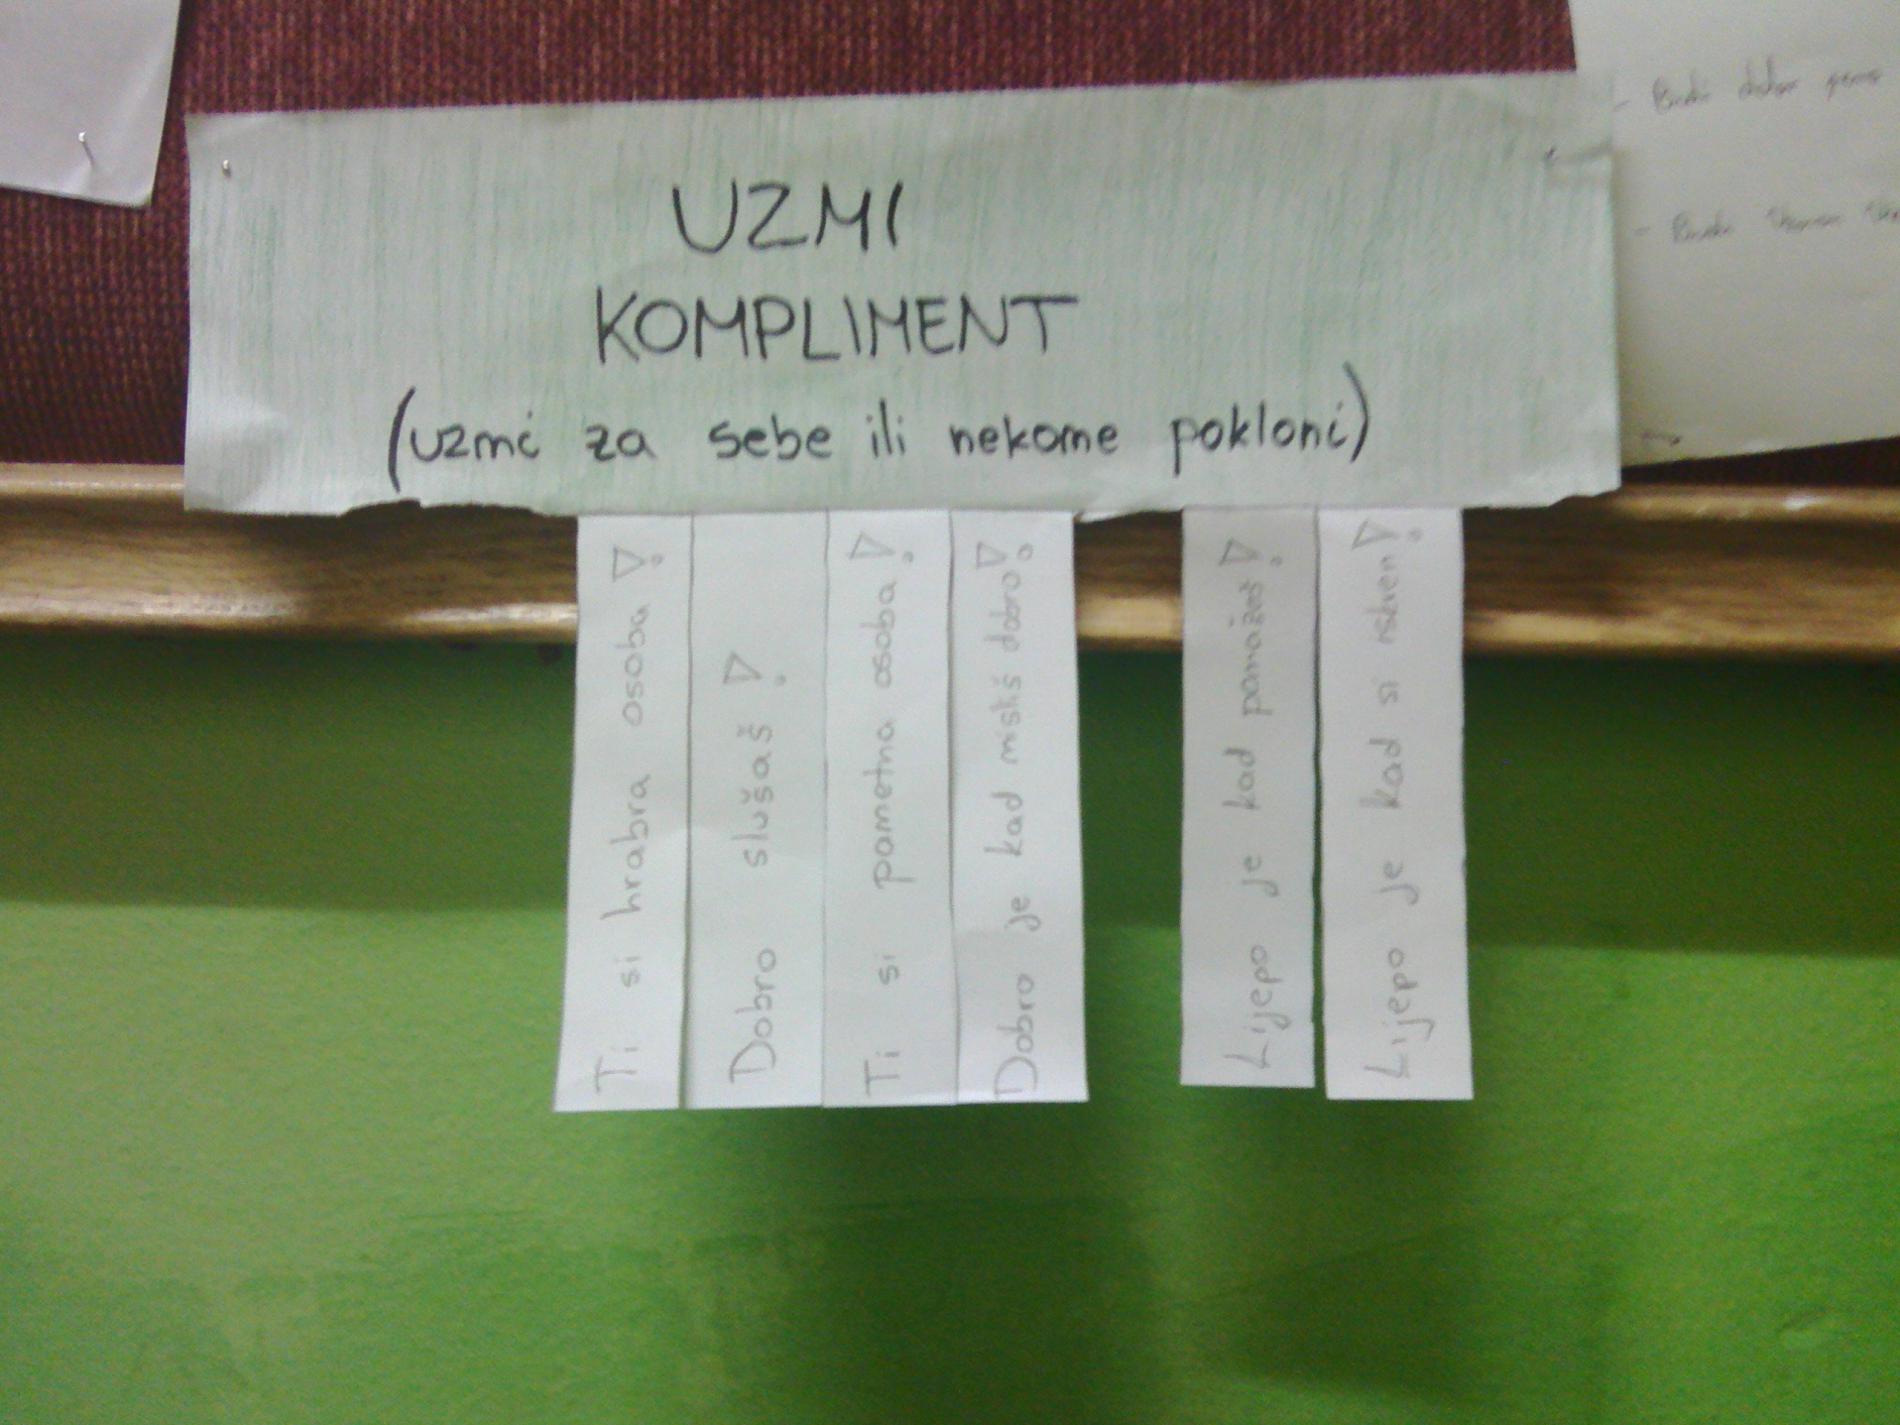 UZMI
KOMPLIMENT
(uzmi za sebe ili nekome pokloni)
Ti si hrabra osoba!
Dobro slušaš!
Ti si pametna osoba!
Dobro je kad misliš dobro!
Lijepo je kad pomažeš!
Lijepo je kad si iskren!